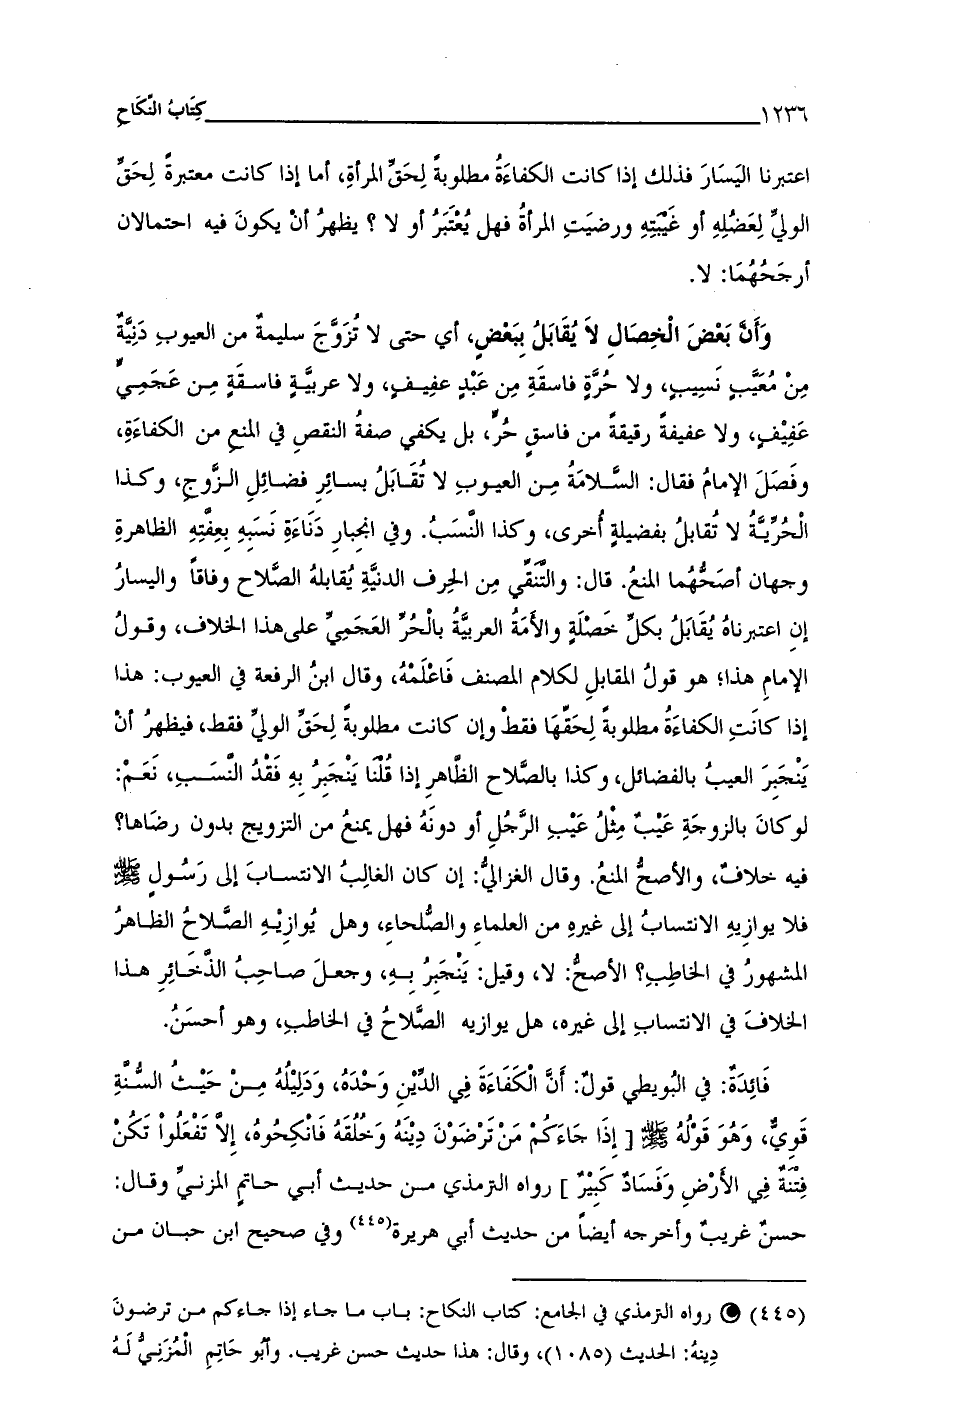 ١٢٣٦ كِتَابُ النِّكَاحِ
اعتبرنا اليَسَارَ فذلك إذا كانت الكفاءَةُ مطلوبةً لِحَقِّ المرأةِ، أما إذا كانت معتبرةً لِحَقِّ
الوليِّ لِعَضْلِهِ أو غَيْبَتِهِ ورضيَتِ المرأةُ فهل يُعْتَبَرُ أو لا ؟ يظهرُ أنْ يكونَ فيه احتمالان
أرجَحُهُمَا: لا.
وَأَنَّ بَعْضَ الْخِصَالِ لاَ يُقَابَلُ بِبَعْضٍ، أي حتى لا تُزَوَّجَ سليمةٌ من العيوبِ دَنِيَّةٌ
مِنْ مُعَيَّبٍ نَسِيبٍ، ولا حُرَّةٍ فاسقَةِ مِن عَبْدٍ عفِيـفٍ، ولا عربيَّةٍ فاسقَةٍ مِـن عَجَمِيٍّ
عَفِيْفٍ، ولا عفيفةً رقيقةً من فاسقٍ حُرٌّ، بل يكفي صفةُ النقصِ في المنعِ من الكفاءَةِ،
وفَصَلَ الإمامُ فقال: السَّلامَةُ مِـن العيـوبِ لا تُقَـابَلُ بسـائِرِ فضـائلِ الـزَّوجِ، وكـذا
الْحُرِّيَّةُ لا تُقابلُ بفضيلةٍ أُخرى، وكذا النَّسَبُ. وفي انجبارِ دَنَاءَةِ نَسَبِهِ بِعِفَّتِهِ الظاهرةِ
وجهان أصَحُّهُما المنعُ. قال: والتَّنَقِّي مِن الحِرف الدنيَّةِ يُقابلهُ الصَّلاح وفاقاً واليسارُ
إن اعتبرناهُ يُقَابَلُ بكلِّ خَصْلَةٍ والأَمَةُ العربيَّةُ بالْحُرِّ العَجَمِيِّ على هذا الخلاف، وقـولُ
الإمامِ هذا؛ هو قولُ المقابلِ لكلام المصنف فَاعْلَمْهُ، وقال ابنُ الرفعة في العيوب: هذا
إذا كانَتِ الكفاءَةُ مطلوبةً لِحَقِّهَا فقطْ وإن كانت مطلوبةً لِحَقِّ الوليِّ فقط، فيظهرُ أنْ
يَنْجَبِرَ العيبُ بالفضائل، وكذا بالصَّلاح الظَّاهرِ إذا قُلْنَا يَنْجَبِرُ بِهِ فَقْدُ النَّسَـبِ، نَعَـمْ:
لو كانَ بالزوجَةِ عَيْبٌ مِثْلُ عَيْبِ الرَّجُلِ أو دونَهُ فهل يمنعُ من التزويج بدون رضَاها؟
فيه خلافٌ، والأصحُّ المنعُ. وقال الغزاليُّ: إن كان الغالِبُ الانتسـابَ إلى رَسُـولِ ﷺ
فلا يوازيهِ الانتسابُ إلى غيرِه من العلماءِ والصُّلحاءِ، وهل يُوازِيْـهِ الصـلاحُ الظـاهرُ
المشهورُ في الخاطِبِ؟ الأصحُّ: لا، وقيل: يَنْجَبِرُ بـهِ، وجعـلَ صـاحِبُ الذَّخَـائِرِ هـذا
الخلافَ في الانتسابِ إلى غيره، هل يوازيه الصَّلاحُ في الخاطبِ، وهو أحسَنُ.
فَائِدَةٌ: في البُويطي قولٌ: أَنَّ الْكَفَاءَةَ فِي الدِّيْنِ وَحْدَهُ، وَدَلِيْلُهُ مِـنْ حَيْـثُ السُّـنَّةِ
قَوِيٌّ، وَهُوَ قَوْلُهُ ﷺ [ إِذَا جَاءَكُمْ مَنْ تَرْضَوْنَ دِيْنَهُ وَخُلُقَهُ فَانْكِحُوهُ، إِلاَّ تَفْعَلُواْ تَكُنْ
فِتْنَةٌ فِي الأَرْضِ وَفَسَادٌ كَبِيْرٌ ] رواه الترمذي مـن حديـث أبـي حـاتمٍ المزنـيِّ وقـال:
حسنٌ غريبٌ وأخرجه أيضاً من حديث أبي هريرة(٤٤٥) وفي صحيح ابن حبـان مـن
(٤٤٥) رواه الترمذي في الجامع: كتاب النكاح: بـاب مـا جـاء إذا جـاءكم مـن ترضـونَ
دِينهُ: الحديث (١٠٨٥)، وقال: هذا حديث حسن غريب. وأَبُو حَاتِمِ الْمُزَنِيُّ لَـهُ